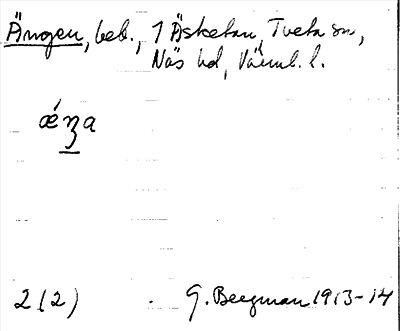 Ängen, beb., 1 Äsketan, Tveta sn,
Näs hd, Värml. l.
ǽꞑa
2 (2) G. Bergman 1913-14